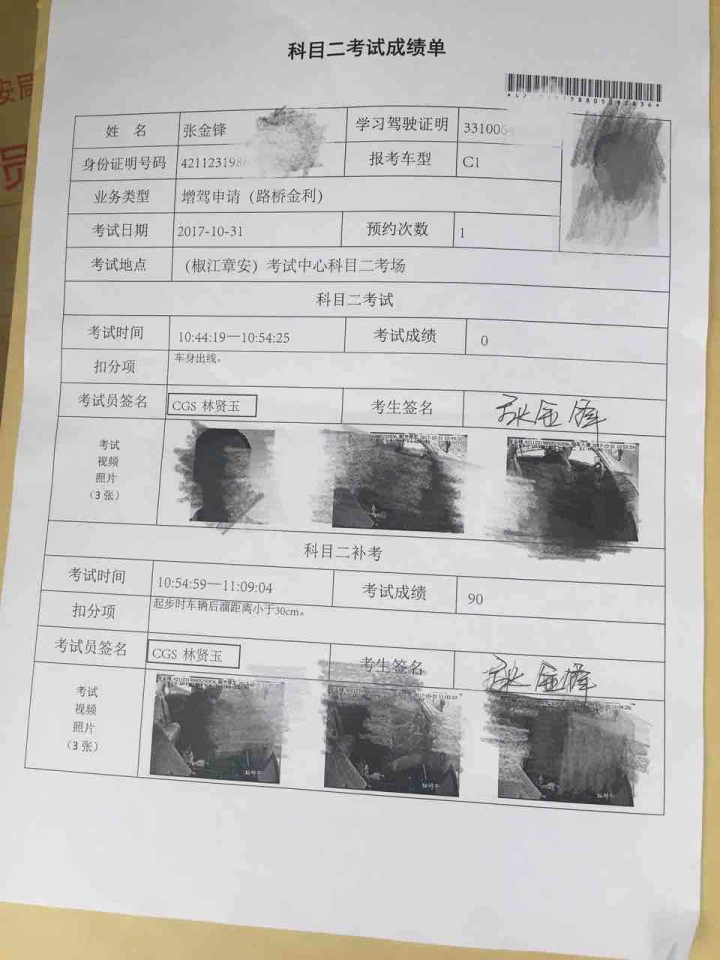 安局
员
科目二考试成绩单
姓 名 张金锋 学习驾驶证明 331006
身份证明号码 421123198 报考车型 C1
业务类型 增驾申请（路桥金利）
考试日期 2017-10-31 预约次数 1
考试地点 （椒江章安）考试中心科目二考场
科目二考试
考试时间 10:44:19—10:54:25 考试成绩 0
扣分项 车身出线。
考试员签名 CGS 林贤玉 考生签名 张金锋
考试
视频
照片
（3 张）
科目二补考
考试时间 10:54:59—11:09:04 考试成绩 90
扣分项 起步时车辆后溜距离小于30cm。
考试员签名 CGS 林贤玉 考生签名 张金锋
考试
视频
照片
（3 张）